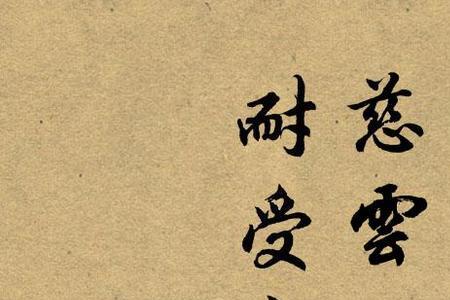 慈雲
耐受